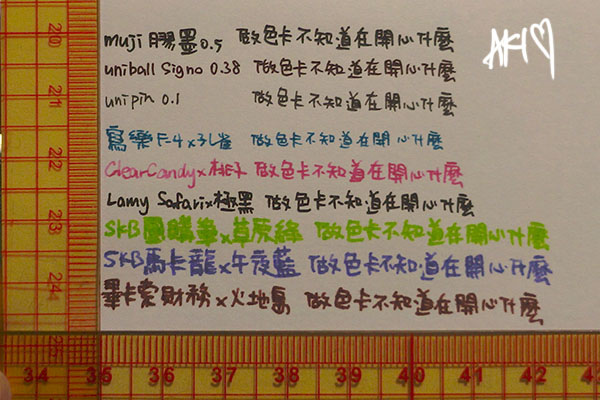 muji 膠墨0.5 做色卡不知道在開心什麼
AKI♡
uniball Signo 0.38 做色卡不知道在開心什麼
uni pin 0.1 做色卡不知道在開心什麼
寫樂F-4x孔雀 做色卡不知道在開心什麼
ClearCandyx桃子 做色卡不知道在開心什麼
Lamy Safarix極黑 做色卡不知道在開心什麼
SKB團購筆x草原綠 做色卡不知道在開心什麼
SKB馬卡龍x午夜藍 做色卡不知道在開心什麼
畢卡索財務x火地島 做色卡不知道在開心什麼
20
21
22
23
24
25
34 35 36 37 38 39 40 41 42 43